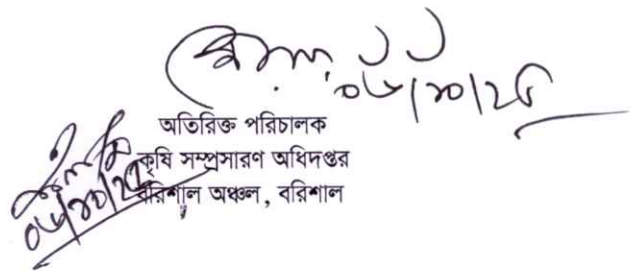 ০৮/১০/২৫
অতিরিক্ত পরিচালক
কৃষি সম্প্রসারণ অধিদপ্তর
বরিশাল অঞ্চল, বরিশাল
০৮/১০/২৫